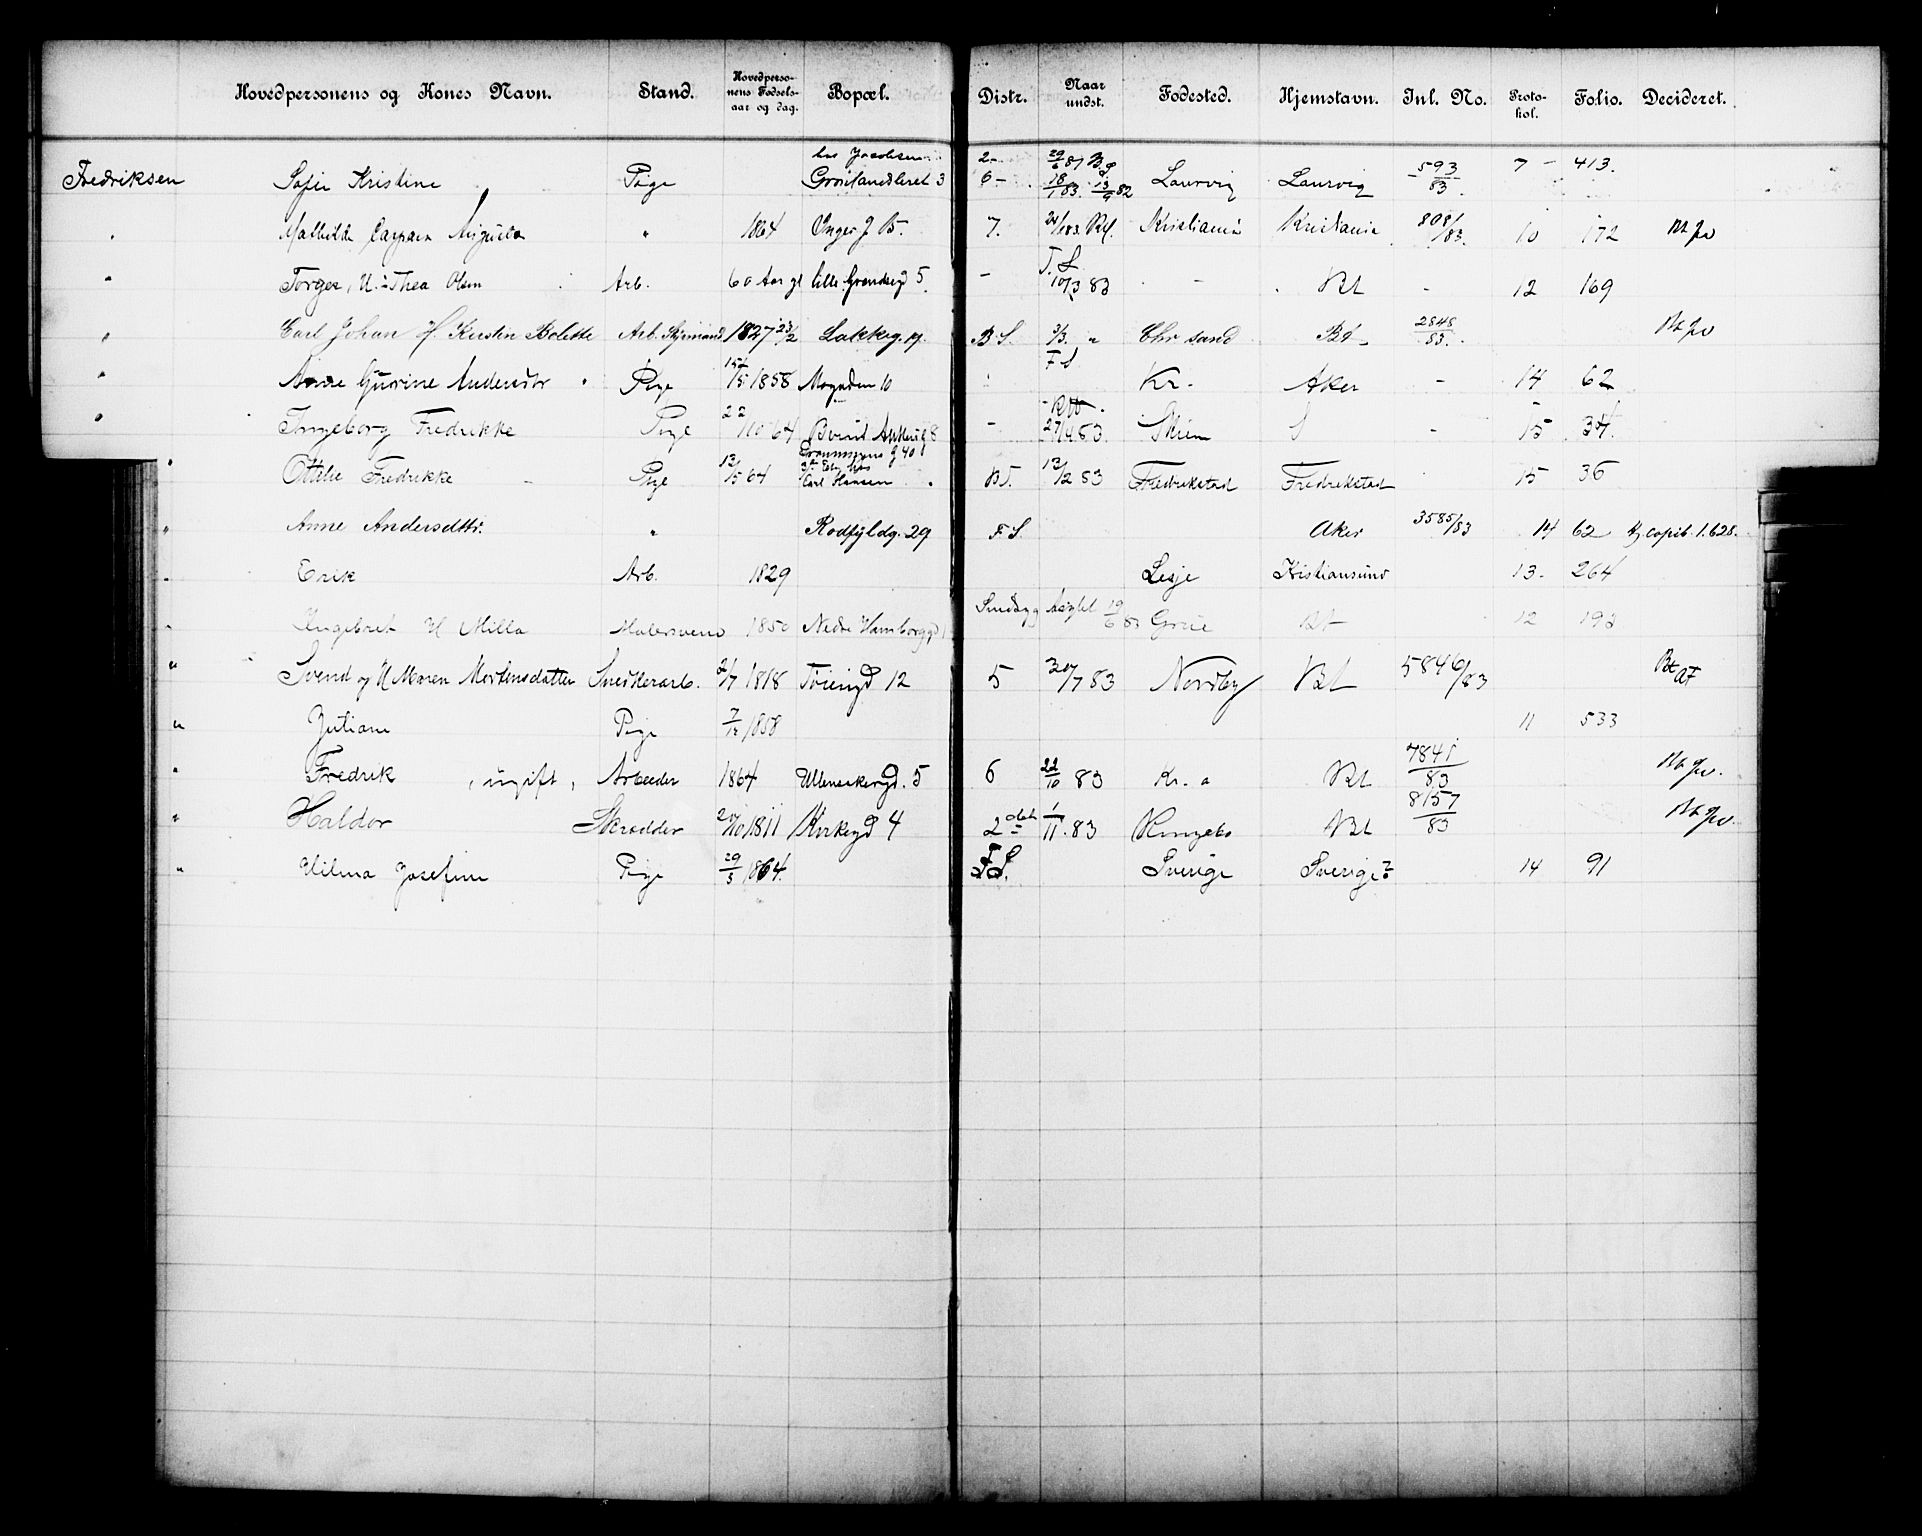 Hovedpersonens og Kones Navn. Stand. Hovedperso-nens Fødsels-aar og dag. Bopæl. Distr. Naar undst. Fødested. Hjemstavn. Inl. No. Proto-kol. Folio. Decideret.
hos Jacobsen 2- 29/6 81 B
Fredriksen Sofie Kristine Pige Grønlandsleret 3 6- 18/1 83. 13/9 82 Laurvig Laurvig 593/83 7 - 413.
" Mathilde Caspara Augusta " 1864 Unger J B. 7. 24/1 83. Kristiania Kristiania 808/83. 10 172 Bt Jv
" Torger, H. Thea Olsen Arb. 60 Aar gl Lille Grændseg 5. - F.S. 10/3 83 - Bt - 12 169
" Carl Johan H. Kirstin Bolette Arb. Styrmand 1827 23/2 Lakkeg. 19. B S. 3/3. " Chr sand Bt 2848/83. Bt Jv
" Anne Gurine Andersdr Pige 15/5 1858 Mogaden 10 F S Kr. Aker - 14 62
" Ingeborg Fredrikke Pige 22/10 64 Bernt Ankersg 8 - 27/4 83. Skien S - 15 34.
" Ottilie Fredrikke Pige 13/5 64 Grønnegens g 40 3die Etg hos Carl Hansen Bt. 13/2 83 Fredrikstad Fredrikstad 15 36
" Anne Andersdttr. " Rodfyldg. 29 F.S. Aker 3585/83 14 62 Kj. copib. 1.628.
" Erik Arb. 1829 Lesje Kristiansund 13. 264
" Ingebret H Milla Malersvend 1850 Nedre Hamborggd 1 Sindsyg Asylet 19/6 83 Grue Bt 12 193
" Svend og H Maren Mortensdatter Snedkerarb. 2/7 1818 Tøiengd 12 5 30/7 83 Nordby Bt 5846/83 Bt AF
" Juliane Pige 7/12 1858 11 533
" Fredrik, ugift, Arbeider 1864 Ullensakergd. 5 6 22/10 83 Kr. a Bt 7841/83 Bt Jv.
" Haldor Skrædder 20/10 1811 Kirkegd 4 2 1/11. 83 Ringebo Bt 8157/83 Bt Jv.
" Hilma Josefine Pige 29/3 1864. F.S. Sverige Sverige? 14 91